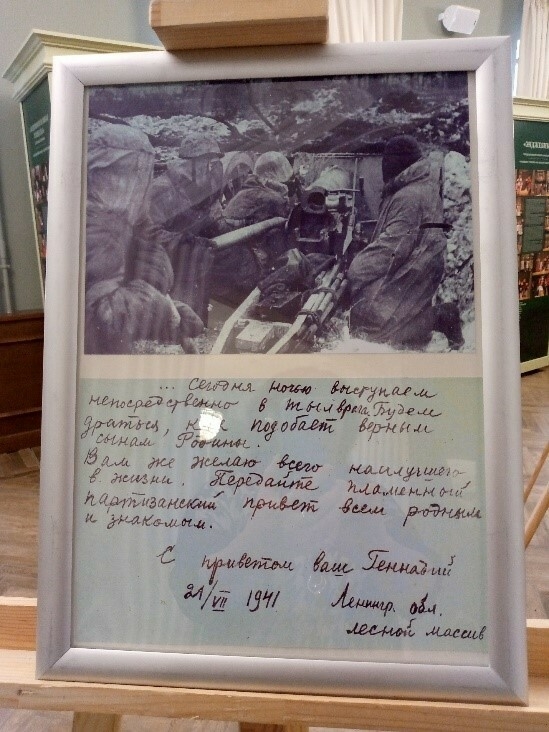 ... Сегодня ночью выступаем
непосредственно в тыл врага. Будем
драться, как подобает верным
сынам Родины.
Вам же желаю всего наилучшего
в жизни. Передайте пламенный
партизанский привет всем родным
и знакомым.
С приветом ваш Геннадий
21/VII 1941 Ленингр. обл.
лесной массив